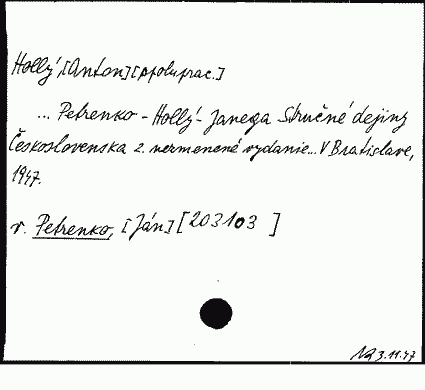 Hollý, [Anton] [spoluprac.]
... Petrenko - Hollý - Janega Stručné dejiny
Československa 2. nezmenené vydanie... V Bratislave,
1947.
v. Petrenko, [Ján] [203103 ]
3.11.47